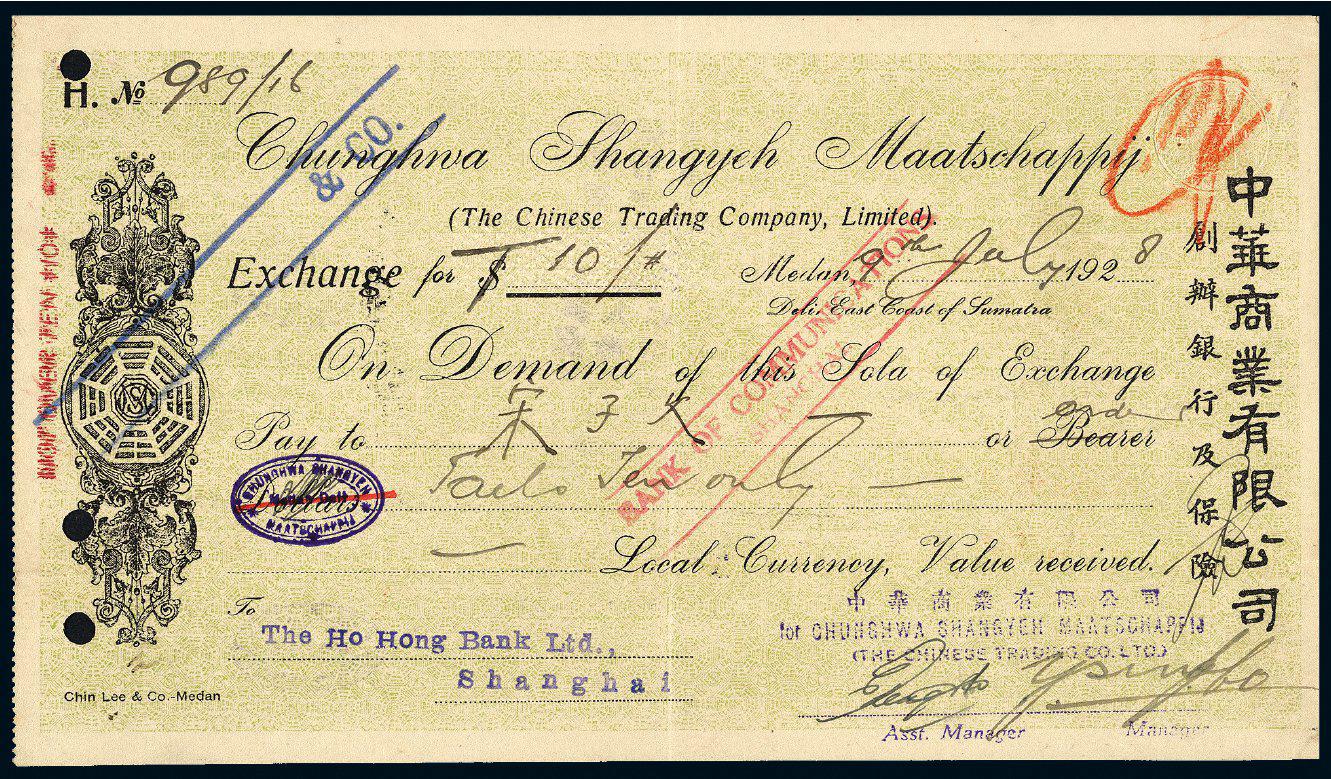 H. № 989/16
Chunghwa Shangyeh Maatschappij
(The Chinese Trading Company, Limited).
Exchange for T $ 10/#
Medan, 9th July 1928
Deli, East Coast of Sumatra
On Demand of this Sola of Exchange
Pay to 宋子文 or Bearer order
Taels Ten only
Dollars
CHUNGHWA SHANGYEH
MAATSCHAPPIJ
Local Currency, Value received.
To
The Ho Hong Bank Ltd.,
Shanghai
中華商業有限公司
for CHUNGHWA SHANGYEH MAATSCHAPPIJ
(THE CHINESE TRADING CO. LTD.)
Asst. Manager Manager
Chin Lee & Co.-Medan
& CO.
BANK OF COMMUNICATIONS
SHANGHAI
中華商業有限公司
創辦銀行及保險